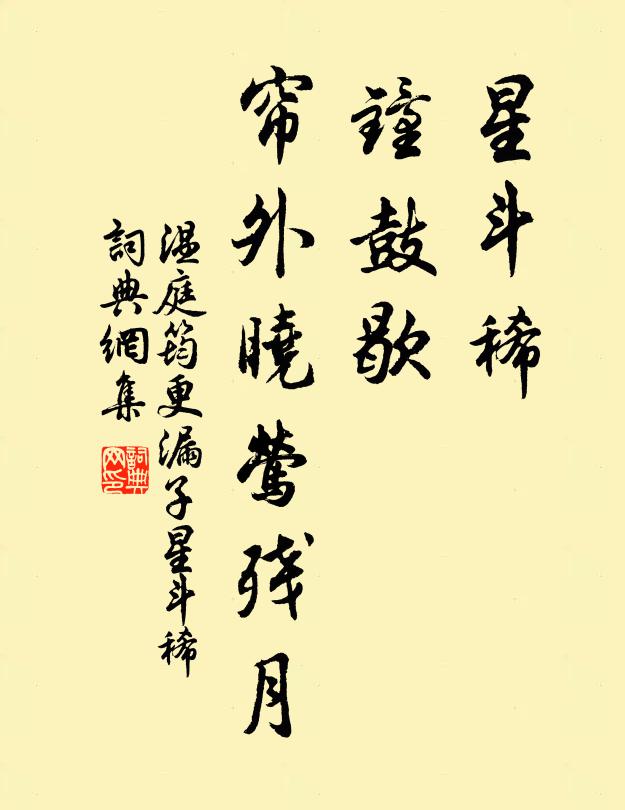 星斗稀
鐘鼓歇
帘外曉鶯残月
溫庭筠更漏子星斗稀
詞典網集
詞典网印